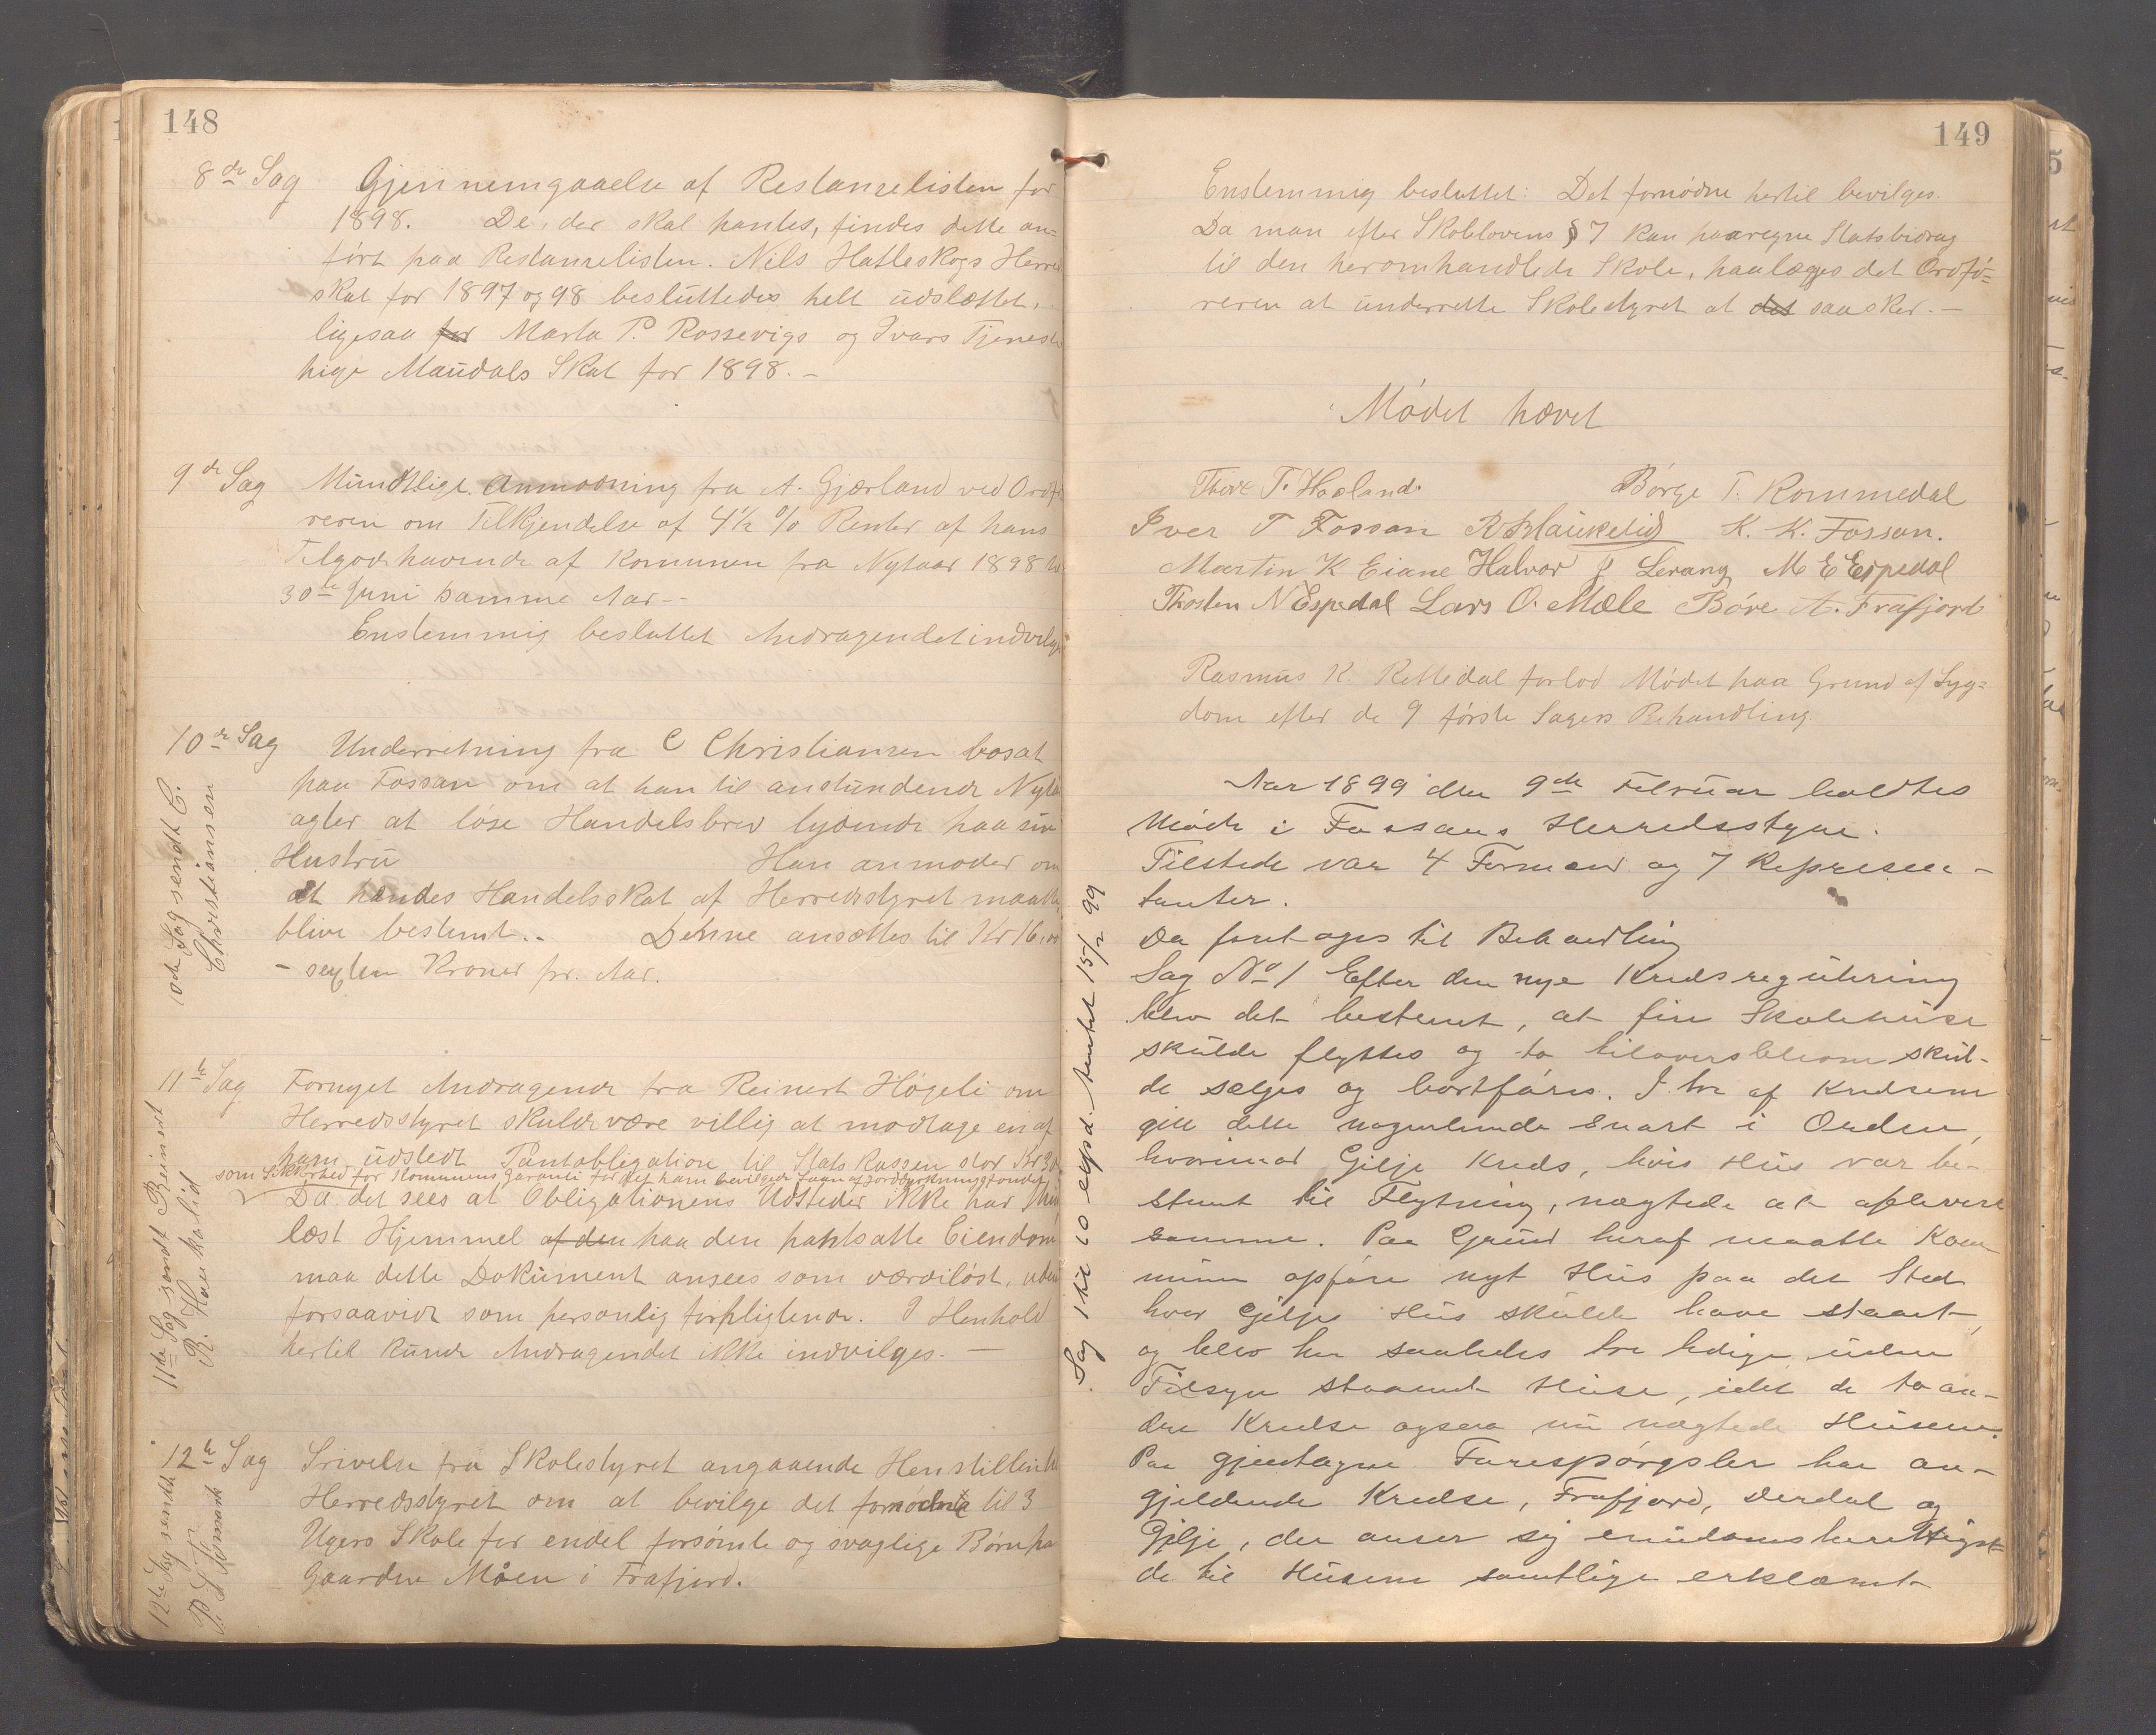 148
8de Sag Gjennemgaaelse af Restanselisten for
1898. De, der skal pantes, findes dette an=
ført paa Restanselisten. Nils Hatleskogs Herred
skat for 1897 og 98 besluttedes helt udslættet,
ligesaa for Marta P. Rossevigs og Ivars Tjeneste
pige Maudals Skat for 1898.-
9de Sag Mundtlige Anmodning fra A. Gjærland ved Ordfø
reren om Tilkjendelse af 4½ % Renter af hans
Tilgodehavende af Komunen fra Nytaar 1898 til
30de Juni samme Aar.-
Enstemmig besluttet Andragendet indvilge
10de Sag Underretning fra C Christiansen bosat
paa Fossan om at han til anstundende Nytaa
agter at løse Handelsbrev lydende paa sin
Hustru Han anmoder om
at hendes Handelsskat af Herredsstyret maatte
blive bestemt.- Denne ansættes til Kr 16,00
- sexten Kroner pr. Aar.
10de Sag sendt C.
Christiansen
11te Sag Fornyet Andragende fra Reinert Høgeli om
Herredsstyret skulde være villig at modtage en af
ham udstedt Pantobligation til Statskassen stor Kr 30
som Sikkerhed for Komunens Garanti for det ham bevilgede Laan af Jorddyrkningsfondet
Da det sees at Obligationens Udsteder ikke har thin
læst Hjemmel af den paa den pantsatte Eiendom
maa dette Dokument ansees som værdiløst, uden
forsaavidt som personlig forpligtende. I Henhold
hertil kunde Andragendet ikke indvilges.-
11te Sag sendt Reinert
R. Haukalid
12te Sag Srivelse fra Skolestyret angaaende Henstillen til
Herredsstyret om at bevilge det fornødne til 3
Ugers Skole for endel forsømte og svaglige Børn pa
Gaarden Måen i Frafjord.
12te Sag sendt
149
Enstemmig besluttet: Det fornødne hertil bevilges.
Da man efter Skolelovens § 7 kan paaregne Statsbidrag
til den heromhandlede Skole, paalægges det Ordfø=
reren at underrette Skolestyret at det saa sker.-
Mødet hævet
Thore T. Haaland. Børge T. Rommedal
Iver T Fossan R Haukelid K. K. Fossan.
Martin K Eiane Halvor J Lerang M E Espedal
Thosten N Espedal Lars O. Mæle Børe A. Frafjord
Rasmus K. Rettedal forlod Mødet paa Grund af Syg=
dom efter de 9 første Sagers Behandling.
Aar 1899 den 9de Februar holdtes
Møde i Fossans Herredsstyre.
Tilstede var 4 Formænd og 7 Represen-
tanter.
Da foretages til Behandling
Sag No 1 Efter den nye Kredsregulering
blev det bestemt, at fire Skolehuse
skulde flyttes og to tiloversblevne skul-
de sælges og bortføres. I tre af Kredsene
gik dette nogenlunde snart i Orden,
hvorimod Gilje Kreds, hvis Hus var be-
stemt til Flytning, nægtede at aflevere
samme. Paa Grund heraf maatte Kom
munen opføre nyt Hus paa det Sted
hvor Giljes Hus skulde have staaet,
og blev her saaledes tre ledige uden
Tilsyn staaende Huse, idet de to an-
dre Kredse ogsaa nu nægtede Husene.
Paa gjentagne Forespørgsler har an-
gjeldende Kredse, Frafjord, Dirdal og
Gilje, der anser sig eiendomsberettiget
de til Husene samtlige erklæret
Sag 1 til 10 expd. sentet 15/2 99